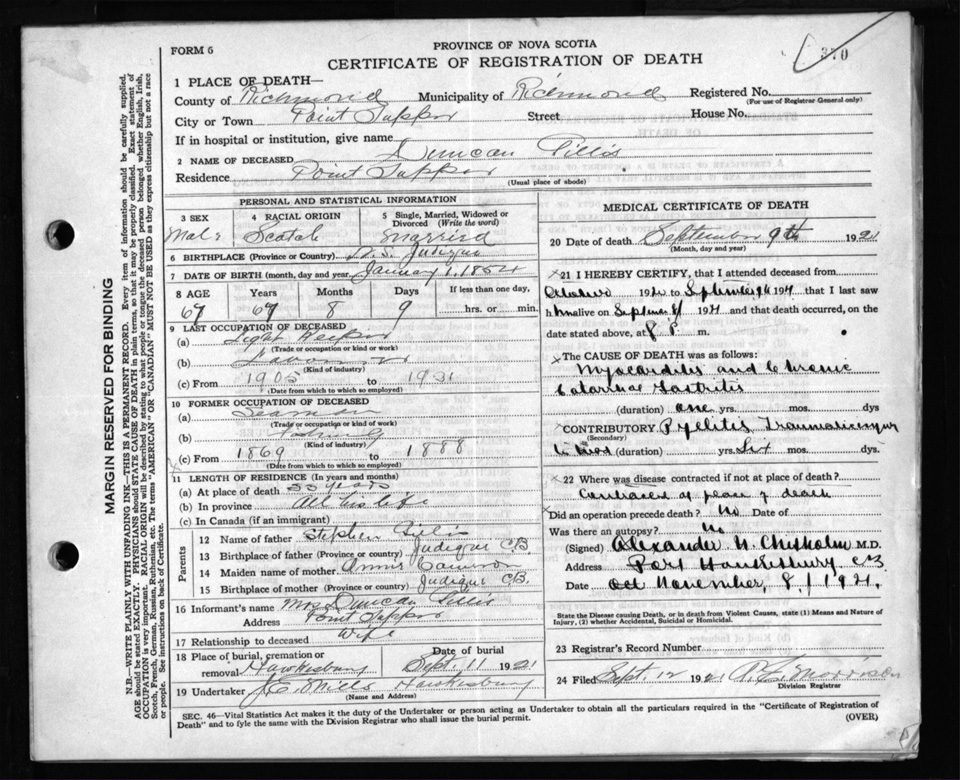 FORM 6
PROVINCE OF NOVA SCOTIA
CERTIFICATE OF REGISTRATION OF DEATH
370
MARGIN RESERVED FOR BINDING
N.B.—WRITE PLAINLY WITH UNFADING INK—THIS IS A PERMANENT RECORD. Every item of information should be carefully supplied.
AGE should be stated EXACTLY. PHYSICIANS should STATE CAUSE OF DEATH in plain terms, so that it may be properly classified. Exact statement of
OCCUPATION is very important. RACIAL ORIGIN will be described by stating to what people or tongue the deceased person belonged whether English, Irish,
Scotch, French, German, Russian, Ruthenian, etc. The terms "AMERICAN" or "CANADIAN" MUST NOT BE USED as they express citizenship but not a race
or people. See instructions on back of Certificate.
1 PLACE OF DEATH—
County of Richmond Municipality of Richmond Registered No.
(For use of Registrar General only)
City or Town Point Tupper Street House No.
If in hospital or institution, give name
2 NAME OF DECEASED Duncan Gillis
Residence Point Tupper
(Usual place of abode)
PERSONAL AND STATISTICAL INFORMATION
3 SEX Male
4 RACIAL ORIGIN Scotch
5 Single, Married, Widowed or Divorced (Write the word) Married
6 BIRTHPLACE (Province or Country) N.S. Judique
7 DATE OF BIRTH (month, day and year) January 1, 1854
8 AGE Years Months Days If less than one day,
67 67 8 9 hrs. or min.
9 LAST OCCUPATION OF DECEASED
(a) Light Keeper
(Trade or occupation or kind of work)
(b)
(Kind of industry)
(c) From 1905 to 1921
(Date from which to which so employed)
10 FORMER OCCUPATION OF DECEASED
(a) Seaman
(Trade or occupation or kind of work)
(b) Fishing
(Kind of industry)
(c) From 1869 to 1888
(Date from which to which so employed)
11 LENGTH OF RESIDENCE (In years and months)
(a) At place of death years
(b) In province All his life
(c) In Canada (if an immigrant)
Parents
12 Name of father Stephen Gillis
13 Birthplace of father (Province or country) Judique CB
14 Maiden name of mother Annie Cameron
15 Birthplace of mother (Province or country) Judique CB.
16 Informant's name Mrs Duncan Gillis
Address Point Tupper
17 Relationship to deceased Wife
18 Place of burial, cremation or removal Hawkesbury Date of burial Sept. 11 1921
19 Undertaker J.E. Mills Hawkesbury
(Name and Address)
MEDICAL CERTIFICATE OF DEATH
20 Date of death September 9th 1921
(Month, day and year)
21 I HEREBY CERTIFY, that I attended deceased from
October 1920 to September 9th 1921 that I last saw
him alive on September 8/ 1921 and that death occurred, on the
date stated above, at 8 P. m.
The CAUSE OF DEATH was as follows:
Myocarditis and Chronic
Catarrhal Gastritis
(duration) one yrs. mos. dys
CONTRIBUTORY Pyelitis, Traumatic injury
(Secondary)
(duration) yrs. Six mos. dys
22 Where was disease contracted if not at place of death?
Contracted at place of death
Did an operation precede death? No Date of
Was there an autopsy? No
(Signed) Alexander N. Chisholm M.D.
Address Port Hawkesbury CB
Date Oct November, 8/ 1921.
State the Disease causing Death, or in death from Violent Causes, state (1) Means and Nature of
Injury, (2) whether Accidental, Suicidal or Homicidal.
23 Registrar's Record Number
24 Filed Sept. 12 1921 Morrison
Division Registrar
SEC. 46—Vital Statistics Act makes it the duty of the Undertaker or person acting as Undertaker to obtain all the particulars required in the "Certificate of Registration of
Death" and to fyle the same with the Division Registrar who shall issue the burial permit.
(OVER)